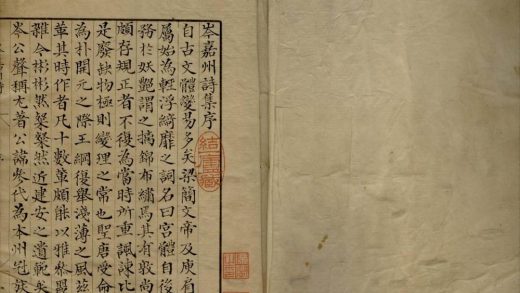 岑嘉州詩集序
自古文體變易多矣梁簡文帝及庾肩
屬始為輕浮綺靡之詞名曰宮體自後
務扵妖艶謂之摛錦布繡焉其有敦尚
頗存規正者不復為當時所重諷諫比
是廢缺物極則變理之常也聖唐受命
為朴開元之際王綱復舉淺薄之風茲
革其時作者凡十數輩頗能以雅參麗
雜今彬彬然粲粲然近建安之遺範矣
岑公聲稱尤著公諱參代為本州冠族
結一廬藏